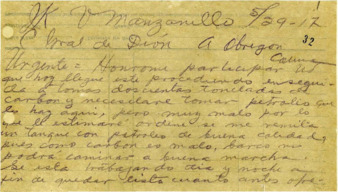 JK V Manzanillo 5/29-17
Gral de Divn A Obregon
32
Colima
Urgente = Honrome participar Ud
que hoy llegue este procediendo ensegui
da a tomar doscientas toneladas de
carbon y necesitare tomar petroleo que
lo hay aqui, pero muy malo por lo
que estimare ordene se me remita
un tanque con petroleo de buena calidad
pues como carbon es malo, barco no
podra caminar a buena marcha.
Se esta trabajando dia y noche a
fin de quedar listo cuanto antes